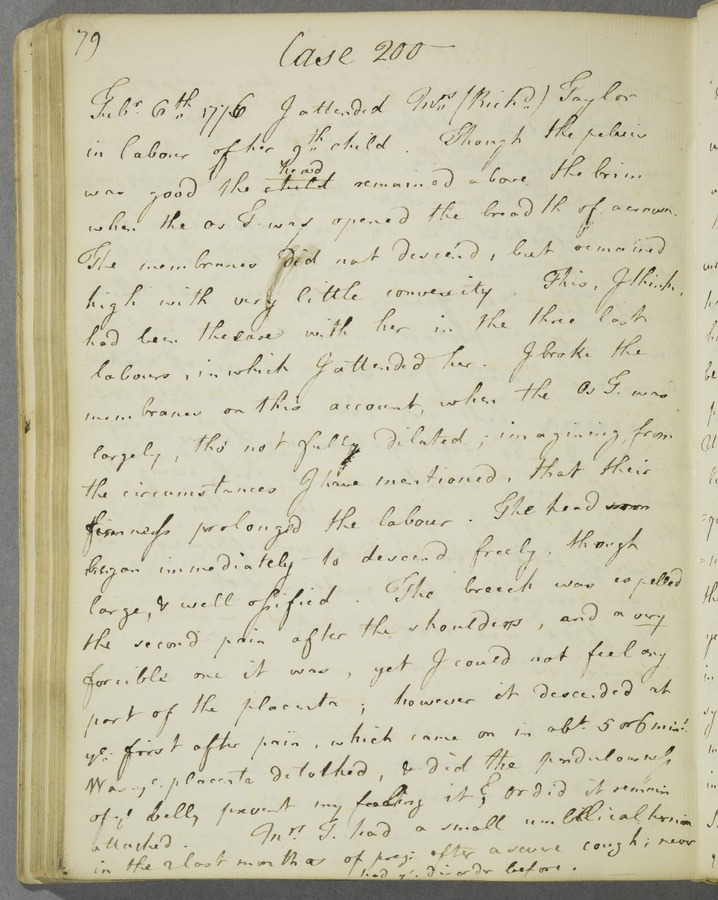 79
Case 200
Febr. 6th. 1776 I attended Mrs. (Richd.) Taylor
in labour of her 9th. child. Though the pelvis
was good the child head remained above the brim
when the os T. was opened the breadth of a crown.
The membranes did not descend, but remained
high with very little convexity. This, I think,
had been the case with her in the three last
labours, in which I attended her. I broke the
membranes on this account, when the Os T. was
largely, tho' not fully dilated; imagining, from
the circumstances I have mentioned, that their
firmness prolonged the labour. The head soon
began immediately to descend freely, though
large, & well ossified. The breech was expelled
the second pain after the shoulders, and a very
forcible one it was, yet I could not feel any
part of the placenta; however it descended at
ye. first after pain, which came on in abt. 5 or 6 mints.
Was ye. placenta detached, & did the pendulousness
of ye. belly prevent my feeling it, or did it remain
attached. Mrs. T. had a small umbilical hernia
in the 2 last months of preg: after a severe cough; never
had ye. disorder before.